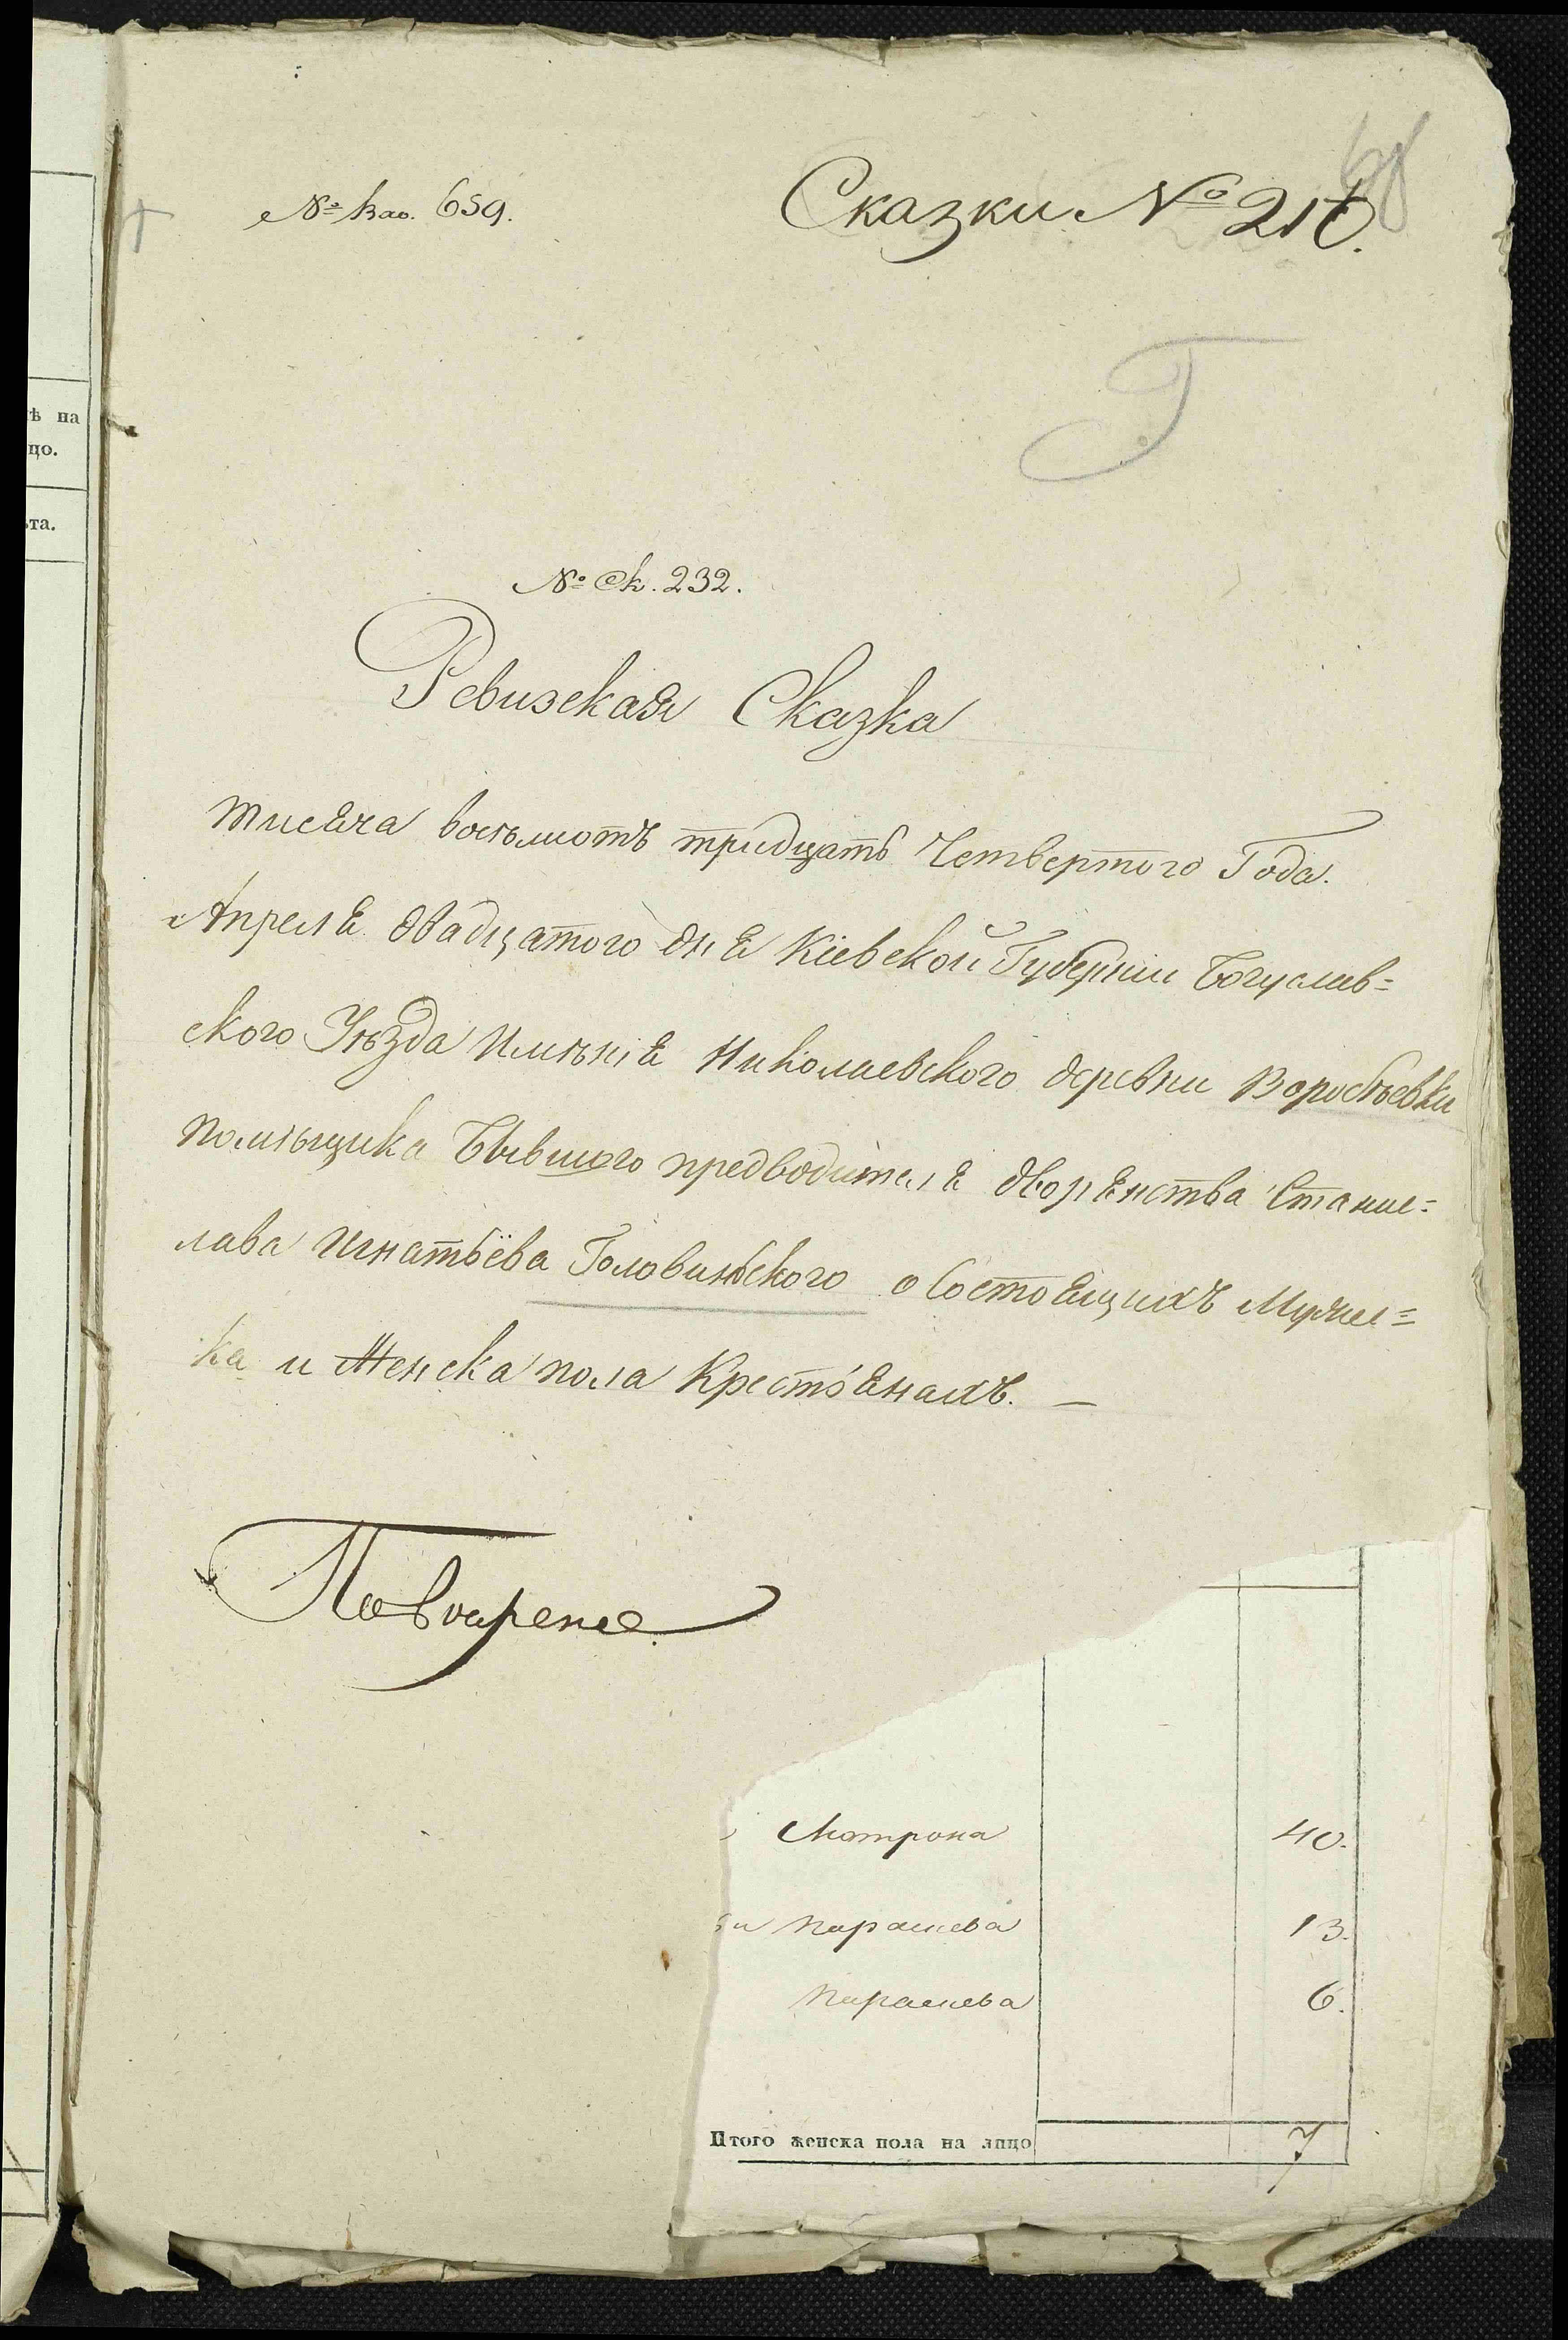 № Вао. 659.
Сказки № 216.
68
ѣ на
цо.
ѣта.
№ Ск. 232.
Ревизская Сказка
тисяча восѣмсотъ тридцать Четвертого Года.
Апреля двадцатого дня Кіевской Губерніи Богуслав=
ского Уѣзда Имѣнія Николаевского деревни Воробъевки
помѣщика Бывшого предводителя дворянства Станис=
лава Игнатьёва Головинского о Состоящихъ Мужес=
ка и Женска пола Крестьянахъ. —
Матрона 40.
Параскева 13.
Параскева 6.
Итого женска пола на лицо 7